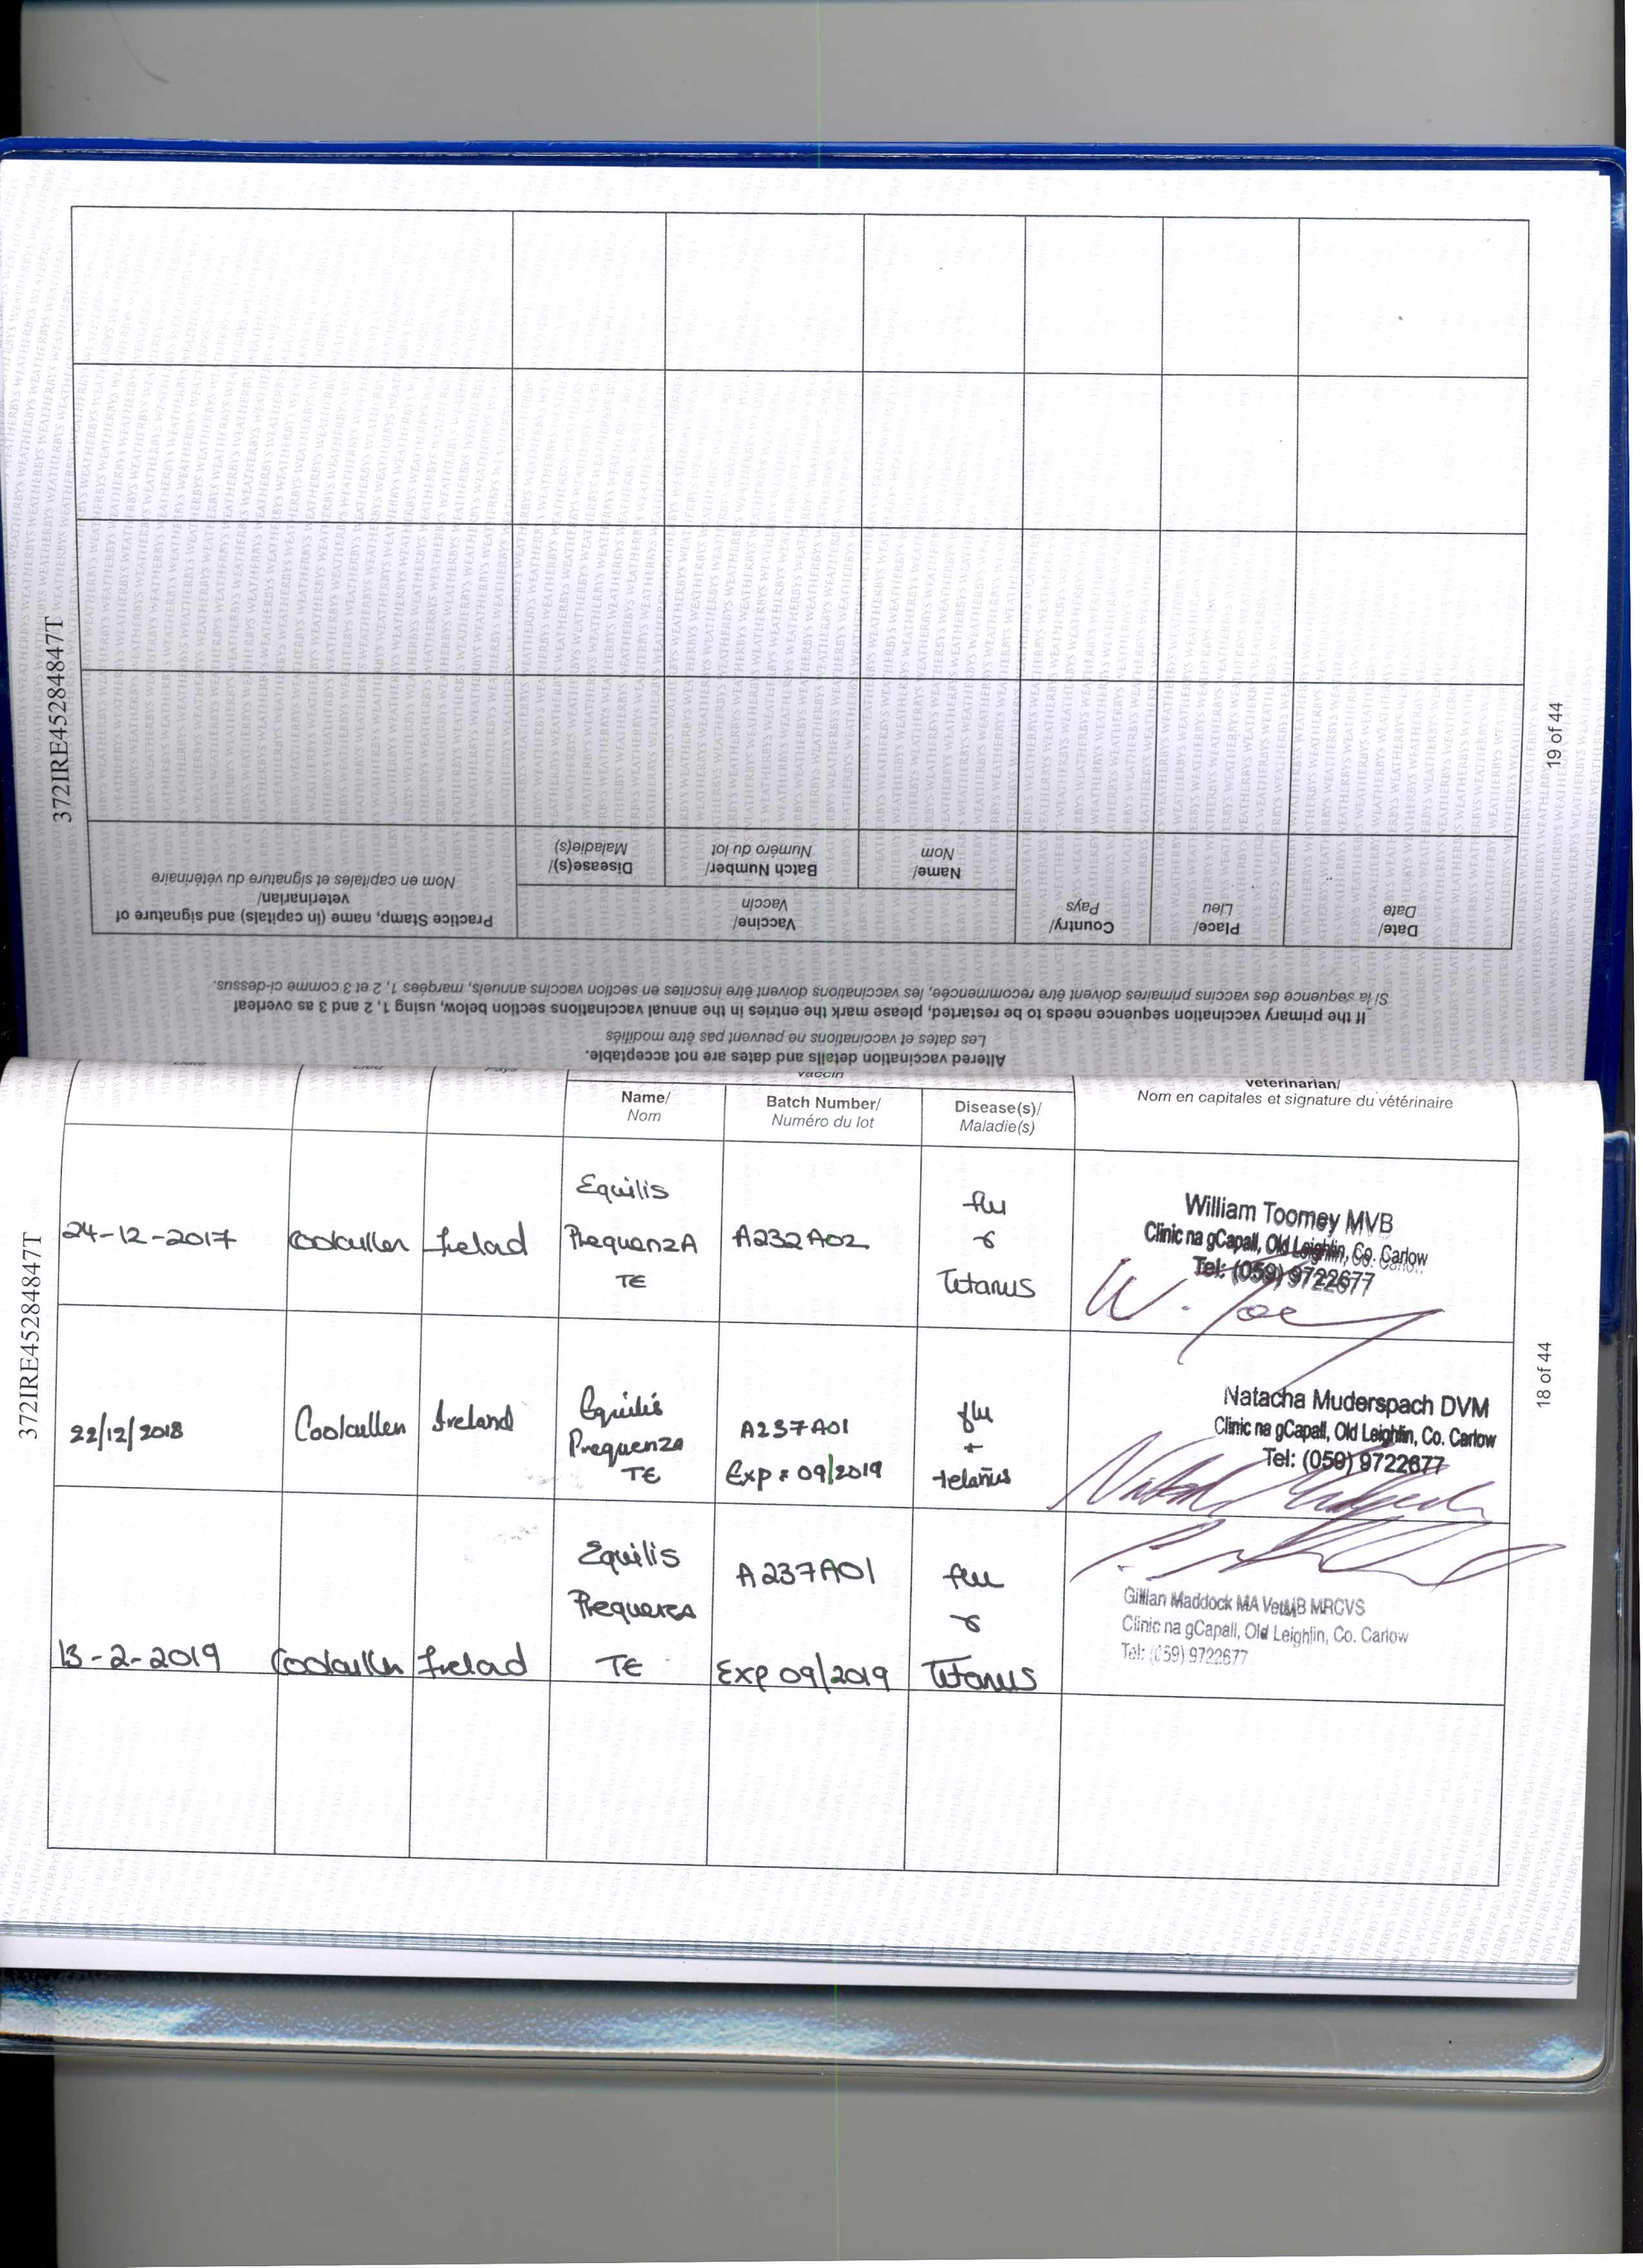 372IRE45284847T
19 of 44
Altered vaccination details and dates are not acceptable.
Les dates et vaccinations ne peuvent pas être modifiés
If the primary vaccination sequence needs to be restarted, please mark the entries in the annual vaccinations section below, using 1, 2 and 3 as overleaf
Si la séquence des vaccins primaires doivent être recommencée, les vaccinations doivent être inscrites en section vaccins annuels, marqées 1, 2 et 3 comme ci-dessus.
Date/
Date
Place/
Lieu
Country/
Pays
Vaccine/
Vaccin
Name/
Nom
Batch Number/
Numéro du lot
Disease(s)/
Maladie(s)
Practice Stamp, name (in capitals) and signature of
veterinarian/
Nom en capitales et signature du vétérinaire
372IRE45284847T
18 of 44
vaccin
Name/
Nom
Batch Number/
Numéro du lot
Disease(s)/
Maladie(s)
veterinarian/
Nom en capitales et signature du vétérinaire
24-12-2017 Coolcullen Irelad Equilis PrequenzA TE A232A02 flu & Tetanus
William Toomey MVB
Clinic na gCapall, Old Leighlin, Co. Carlow
Tel: (059) 9722677
22/12/2018 Coolcullen Ireland Equilis Prequenza TE A237A01 Exp: 09/2019 flu + tetanus
Natacha Muderspach DVM
Clinic na gCapall, Old Leighlin, Co. Carlow
Tel: (059) 9722677
13-2-2019 Coolcullen Irelad Equilis Prequenza TE A237A01 Exp 09/2019 flu & Tetanus
Gillian Maddock MA VetMB MRCVS
Clinic na gCapall, Old Leighlin, Co. Carlow
Tel: (059) 9722677